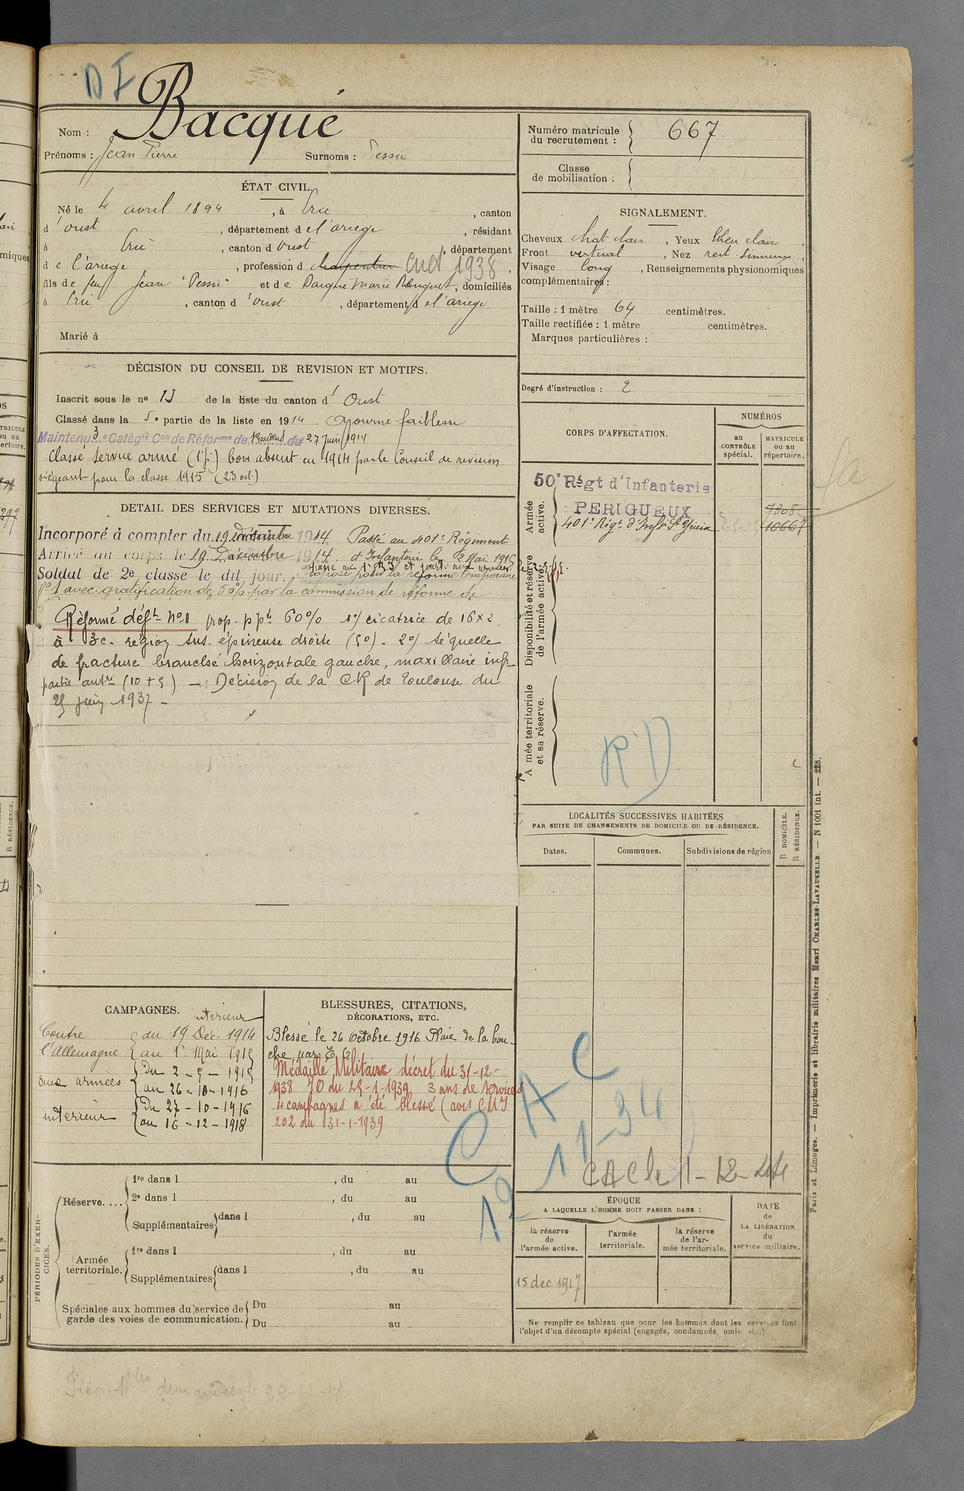 DF
Bacqué
Nom :
Prénoms : Jean Pierre Surnoms : Tessie
ÉTAT CIVIL.
Né le 4 avril 1894, à Ercé, canton
d'Oust, département de l'ariège, résidant
à Ercé, canton d'Oust, département
de l'ariège, profession de charpentier Cult 1938.
fils de feu Jean "Tessie" et de Marie, domiciliés
à Ercé, canton d'Oust, département de l'ariège
Marié à
DÉCISION DU CONSEIL DE REVISION ET MOTIFS.
Inscrit sous le no 13 de la liste du canton d'Oust
Classé dans la 5e partie de la liste en 1914. Ajourné faiblesse
Maintenu 3e Catégie Con de Réforme de du 27 Juin 1914
Classé service armé (1e p) bon absent en 1914 par le Conseil de revision
siégeant pour la classe 1915 (23 oct)
DETAIL DES SERVICES ET MUTATIONS DIVERSES.
Incorporé à compter du 19 décembre 1914. Passé au 401e Régiment
Arrivé au corps le 19 Décembre 1914. d'Infanterie le 2 Mai 1915
Soldat de 2e classe le dit jour. Proposé pour la réforme temporaire
No 1 avec gratification de 50% par la commission de réforme de
Réformé déft No 1 prop. p pte 60% 1o/ cicatrice de 16x2
à 3c. région sus. épineuse droite (50). 2o) séquelle
de fracture branche horizontale gauche, maxillaire infr
partie antre (10 + 5) - Décision de la CR de Toulouse du
25 juin 1937 -
CAMPAGNES.
intérieur
Contre du 19 Déc. 1914
l'Allemagne au 1er Mai 1915
aux armées du 2 - 5 - 1915
au 26 - 10 - 1916
intérieur du 27 - 10 - 1916
au 16 - 12 - 1918
BLESSURES, CITATIONS,
DÉCORATIONS, ETC.
Blessé le 26 Octobre 1916 Plaie de la bou-
che, par E. O.
Médaille Militaire décret du 31-12-
1938 JO du 25-1-1939 3 ans de services
4 campagnes a été blessé (avis CMI
202 du 31-1-1939
PÉRIODES D'EXERCICES.
Réserve....
1re dans l , du au
2e dans l , du au
Supplémentaires dans l , du au
Armée territoriale.
1re dans l , du au
Supplémentaires dans l , du au
Spéciales aux hommes du service de
garde des voies de communication.
Du au
Du au
Numéro matricule
du recrutement : 667
Classe
de mobilisation :
SIGNALEMENT.
Cheveux chat clair, Yeux bleu clair
Front vertical, Nez rect. sinueux
Visage long, Renseignements physionomiques
complémentaires :
Taille : 1 mètre 64 centimètres.
Taille rectifiée : 1 mètre centimètres.
Marques particulières :
Degré d'instruction : 2
CORPS D'AFFECTATION.
NUMÉROS
au
CONTRÔLE
spécial.
MATRICULE
ou au
répertoire.
Armée
active.
50e Régt d'Infanterie
PERIGUEUX 7208
401e Régt d'Infie 10667
Disponibilité et réserve
de l'armée active.
Armée territoriale
et sa réserve.
RD
LOCALITÉS SUCCESSIVES HABITÉES
PAR SUITE DE CHANGEMENTS DE DOMICILE OU DE RÉSIDENCE.
Dates. Communes. Subdivisions de région
D DOMICILE.
R RÉSIDENCE.
CAC
12 11-34
CAC le 1-12-44
ÉPOQUE
A LAQUELLE L'HOMME DOIT PASSER DANS :
la réserve
de
l'armée active.
l'armée
territoriale.
la réserve
de l'ar-
mée territoriale.
DATE
de
LA LIBÉRATION
du
service militaire.
15 dec 1917
Ne remplir ce tableau que pour les hommes dont les services font
l'objet d'un décompte spécial (engagés, condamnés, omis etc.)
Paris et Limoges. — Imprimerie et librairie militaires Henri CHARLES-LAVAUZELLE. — N 1001 int. — 218.